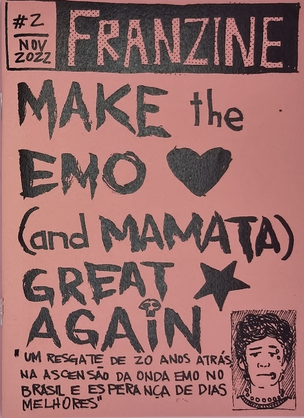 #2
NOV
2022
FRANZINE
MAKE the
EMO
(and MAMATA)
GREAT
AGAiN
"UM RESGATE DE 20 ANOS ATRÁS
NA ASCENSÃO DA ONDA EMO NO
BRASIL E ESPERANÇA DE DIAS
MELHORES"